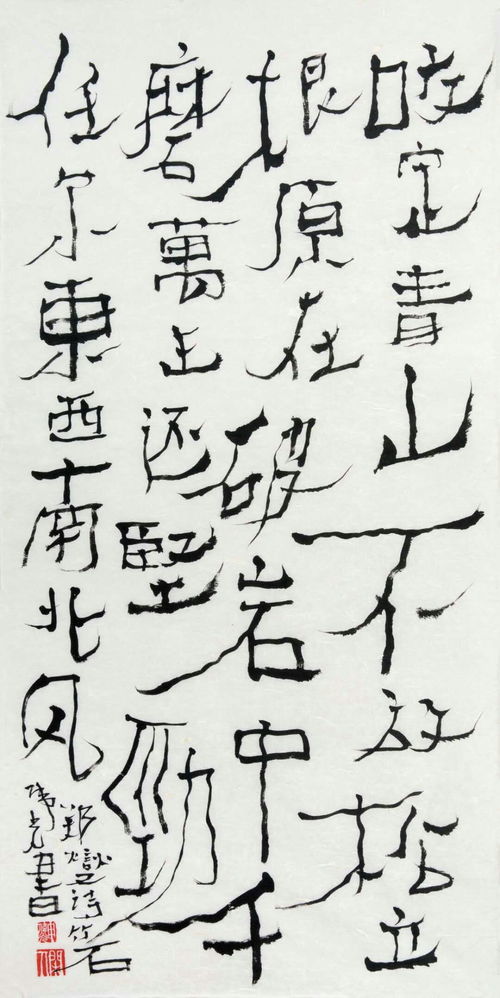 咬定青山不放松立
根原在破岩中千
磨萬击还堅劲
任尔東西南北风
郑燮诗竹石
光書